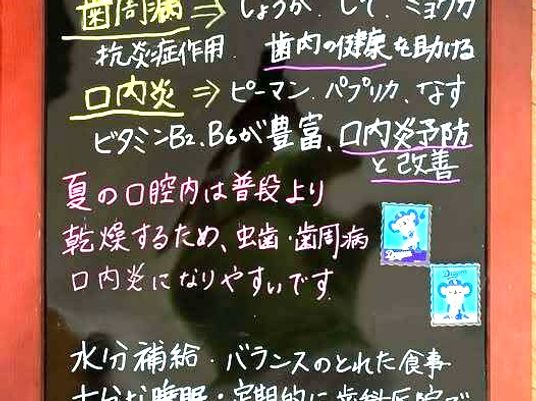 歯周病⇒しょうが、しそ、ミョウガ
抗炎症作用 歯肉の健康を助ける
口内炎⇒ピーマン、パプリカ、なす
ビタミンB2、B6が豊富、口内炎予防
と改善
夏の口腔内は普段より
乾燥するため、虫歯・歯周病
口内炎になりやすいです
水分補給・バランスのとれた食事
十分な睡眠・定期的に歯科医院で